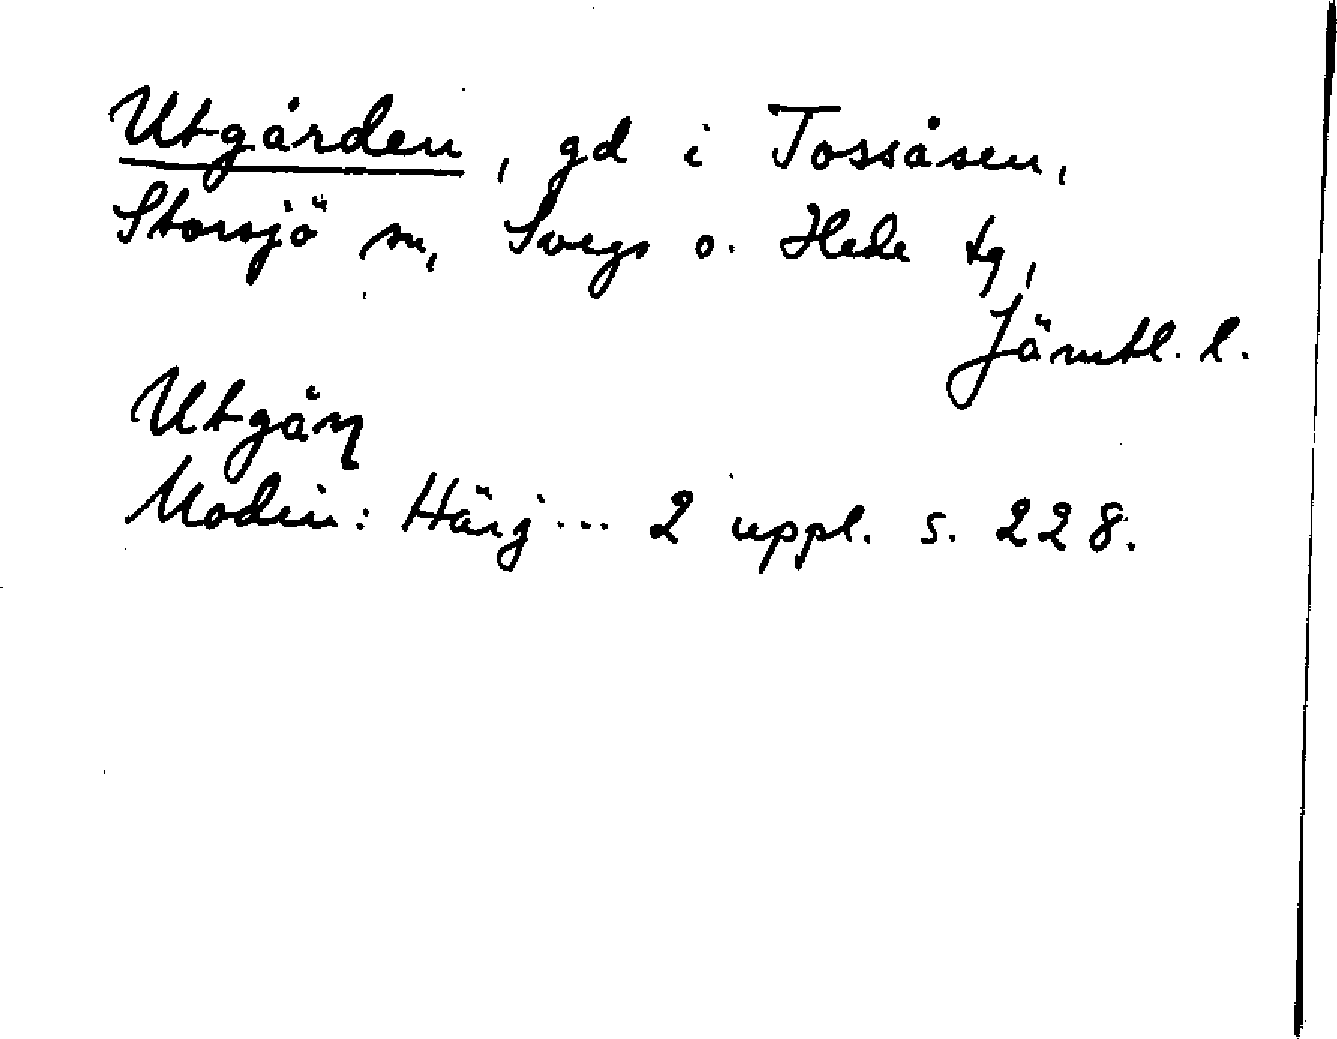 Utgården, gd i Tossåsen,
Storsjö sn, Svegs o. Hede tg,
Jämtl. l.
Utgäɳ
Modin: Härj... 2 uppl. s. 228.